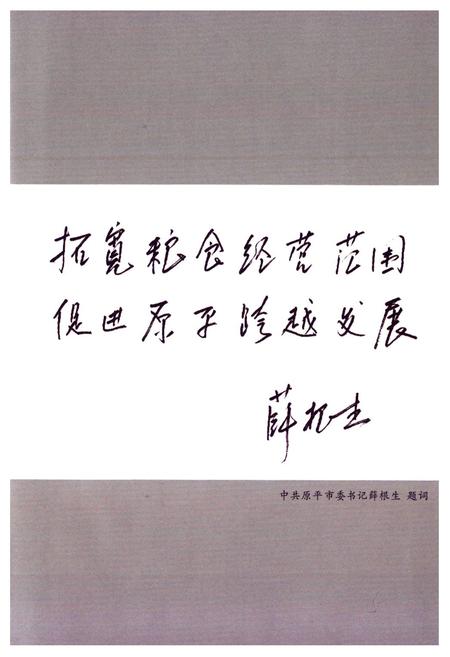 拓宽粮食经营范围
促进原平跨越发展
薛根生
中共原平市委书记薛根生 题词